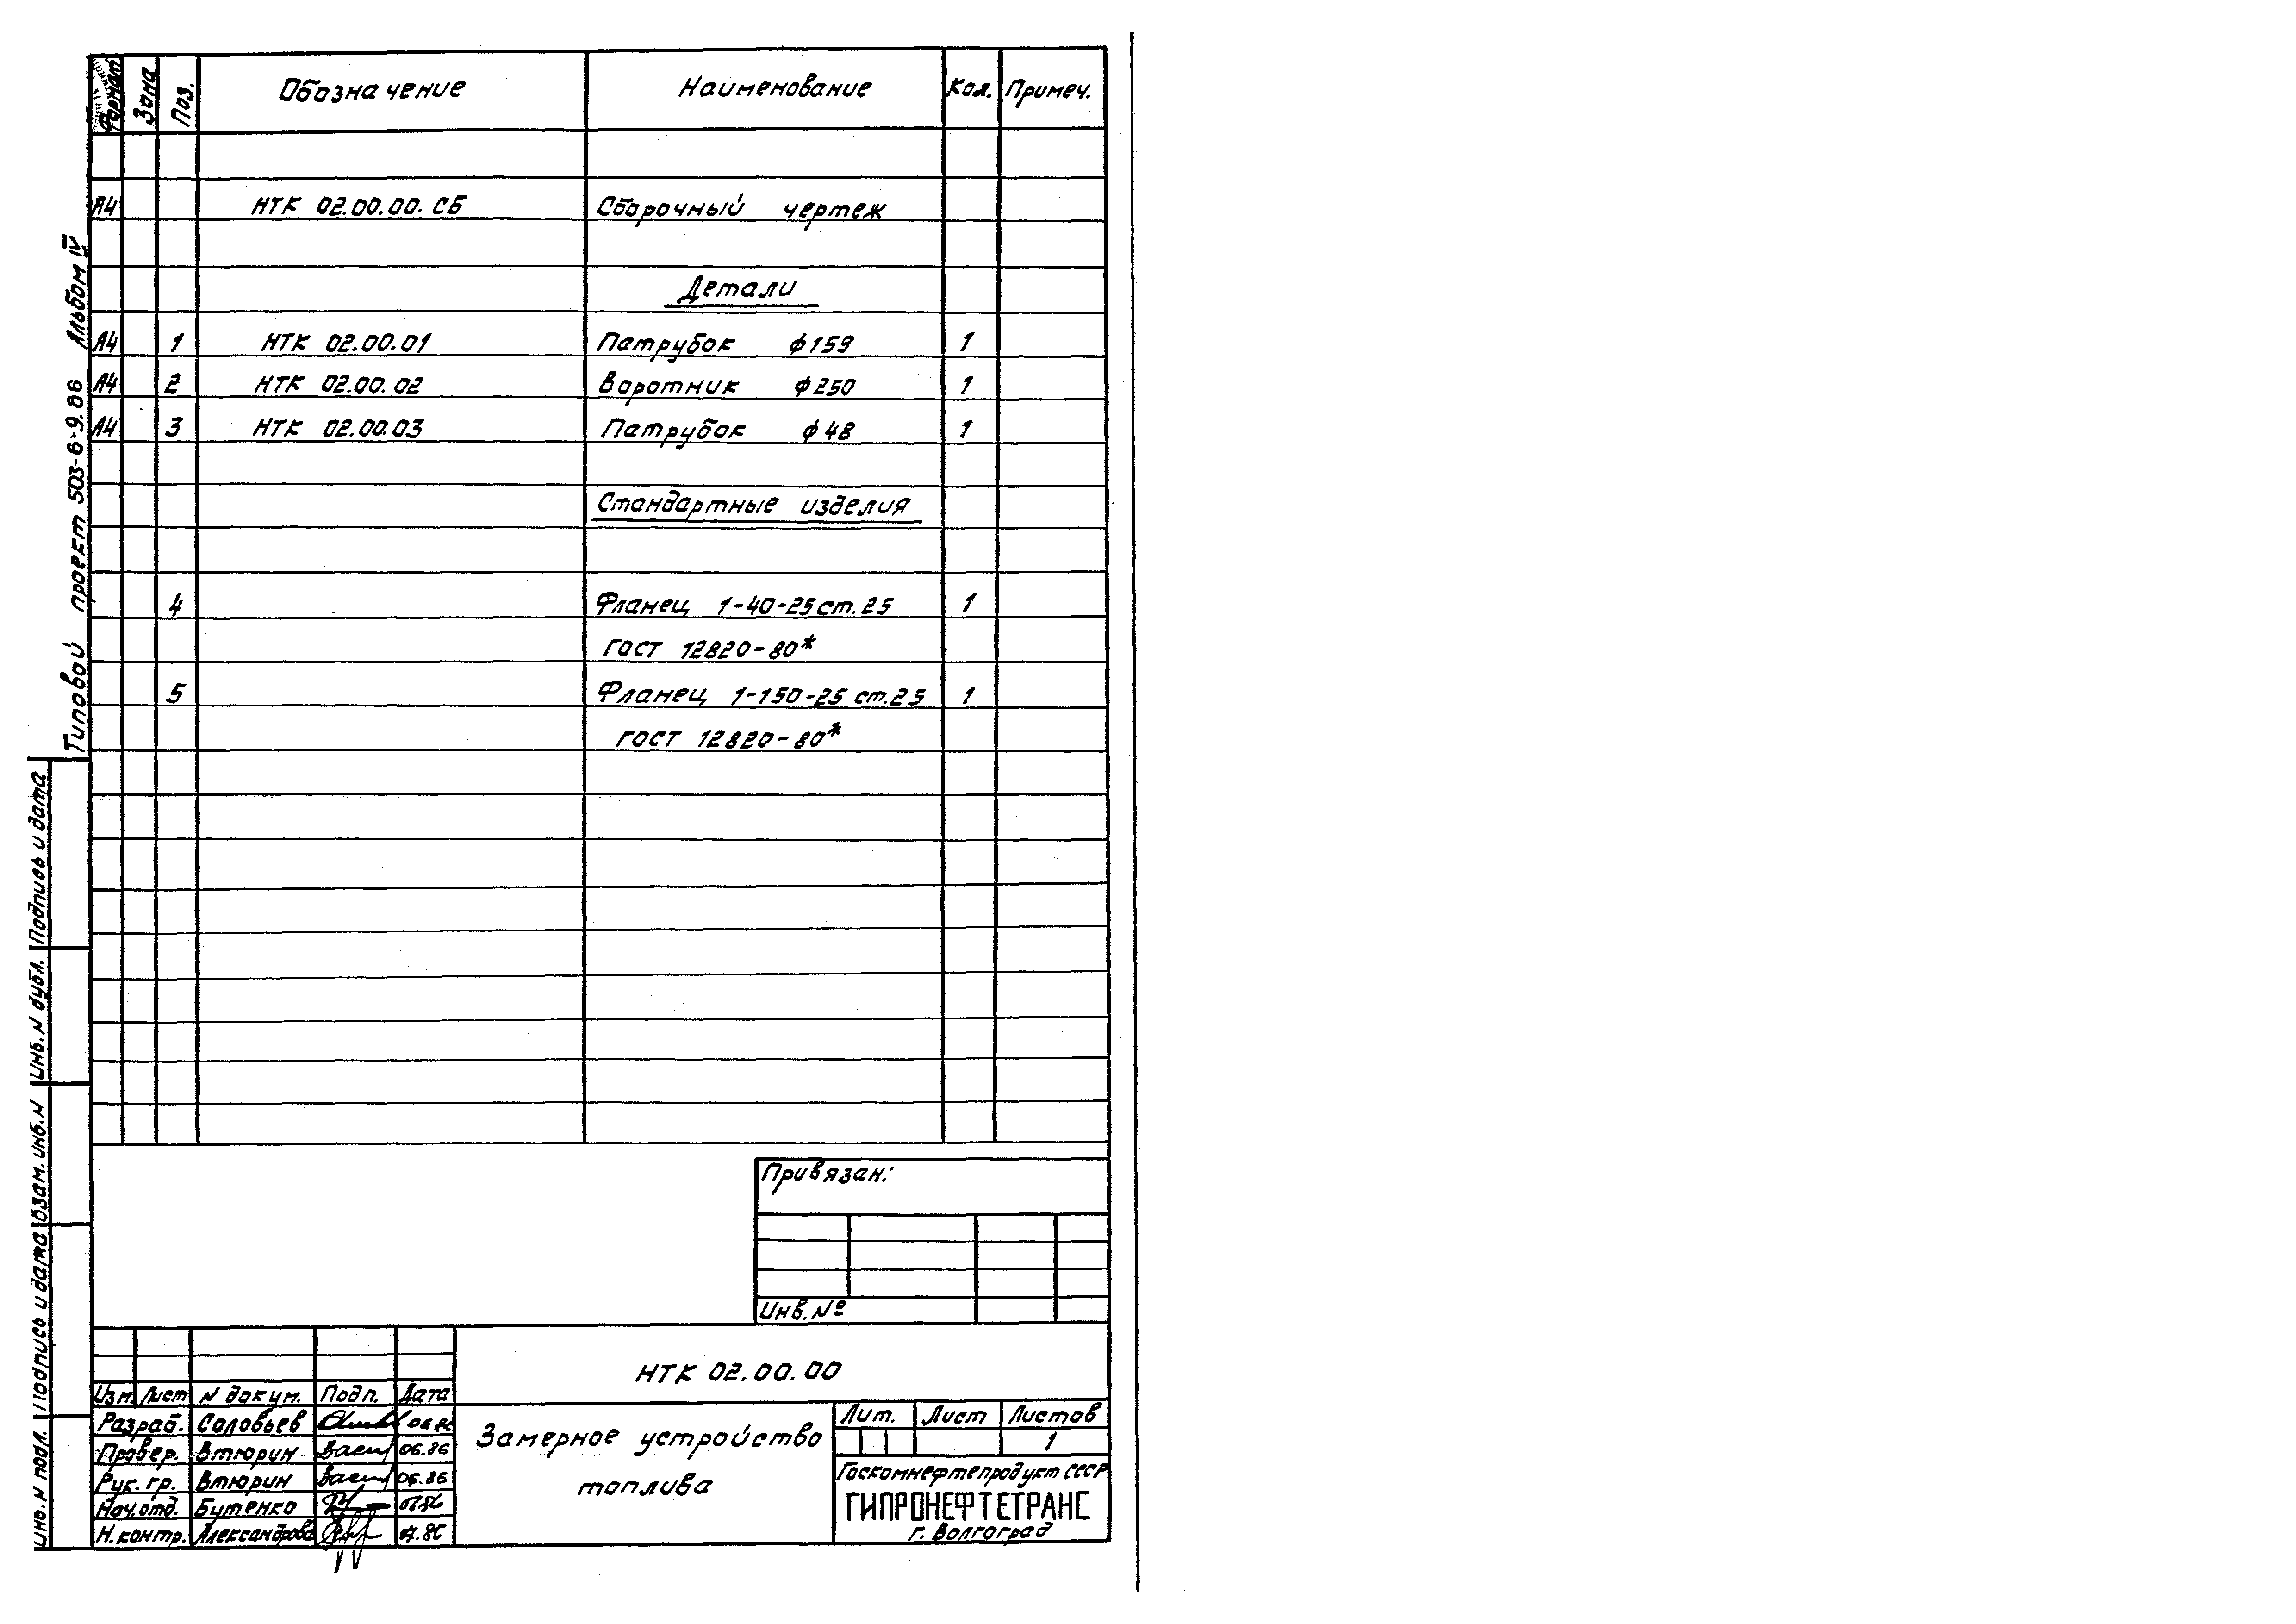 Формат Зона Поз. Обозначение Наименование Кол. Примеч.
А4 НТК 02.00.00.СБ Сборочный чертеж
Детали
А4 1 НТК 02.00.01 Патрубок ф159 1
А4 2 НТК 02.00.02 Воротник ф250 1
А4 3 НТК 02.00.03 Патрубок ф48 1
Стандартные изделия
4 Фланец 1-40-25 ст.25 1
ГОСТ 12820-80*
5 Фланец 1-150-25 ст.25 1
ГОСТ 12820-80*
Типовой проект 503-6-9.86 Альбом IV
Подпись и дата
Инв.N дубл.
Взам.инв.N
Подпись и дата
Инв.N подл.
Привязан:
Инв.№
НТК 02.00.00
Изм. Лист N докум. Подп. Дата
Разраб. Соловьев 06.86
Провер. Втюрин 06.86
Рук.гр. Втюрин 06.86
Нач.отд. Бутенко
Н.контр. Александрова 07.86
Замерное устройство
топлива
Лит. Лист Листов
1
Госкомнефтепродукт СССР
ГИПРОНЕФТЕТРАНС
г. Волгоград